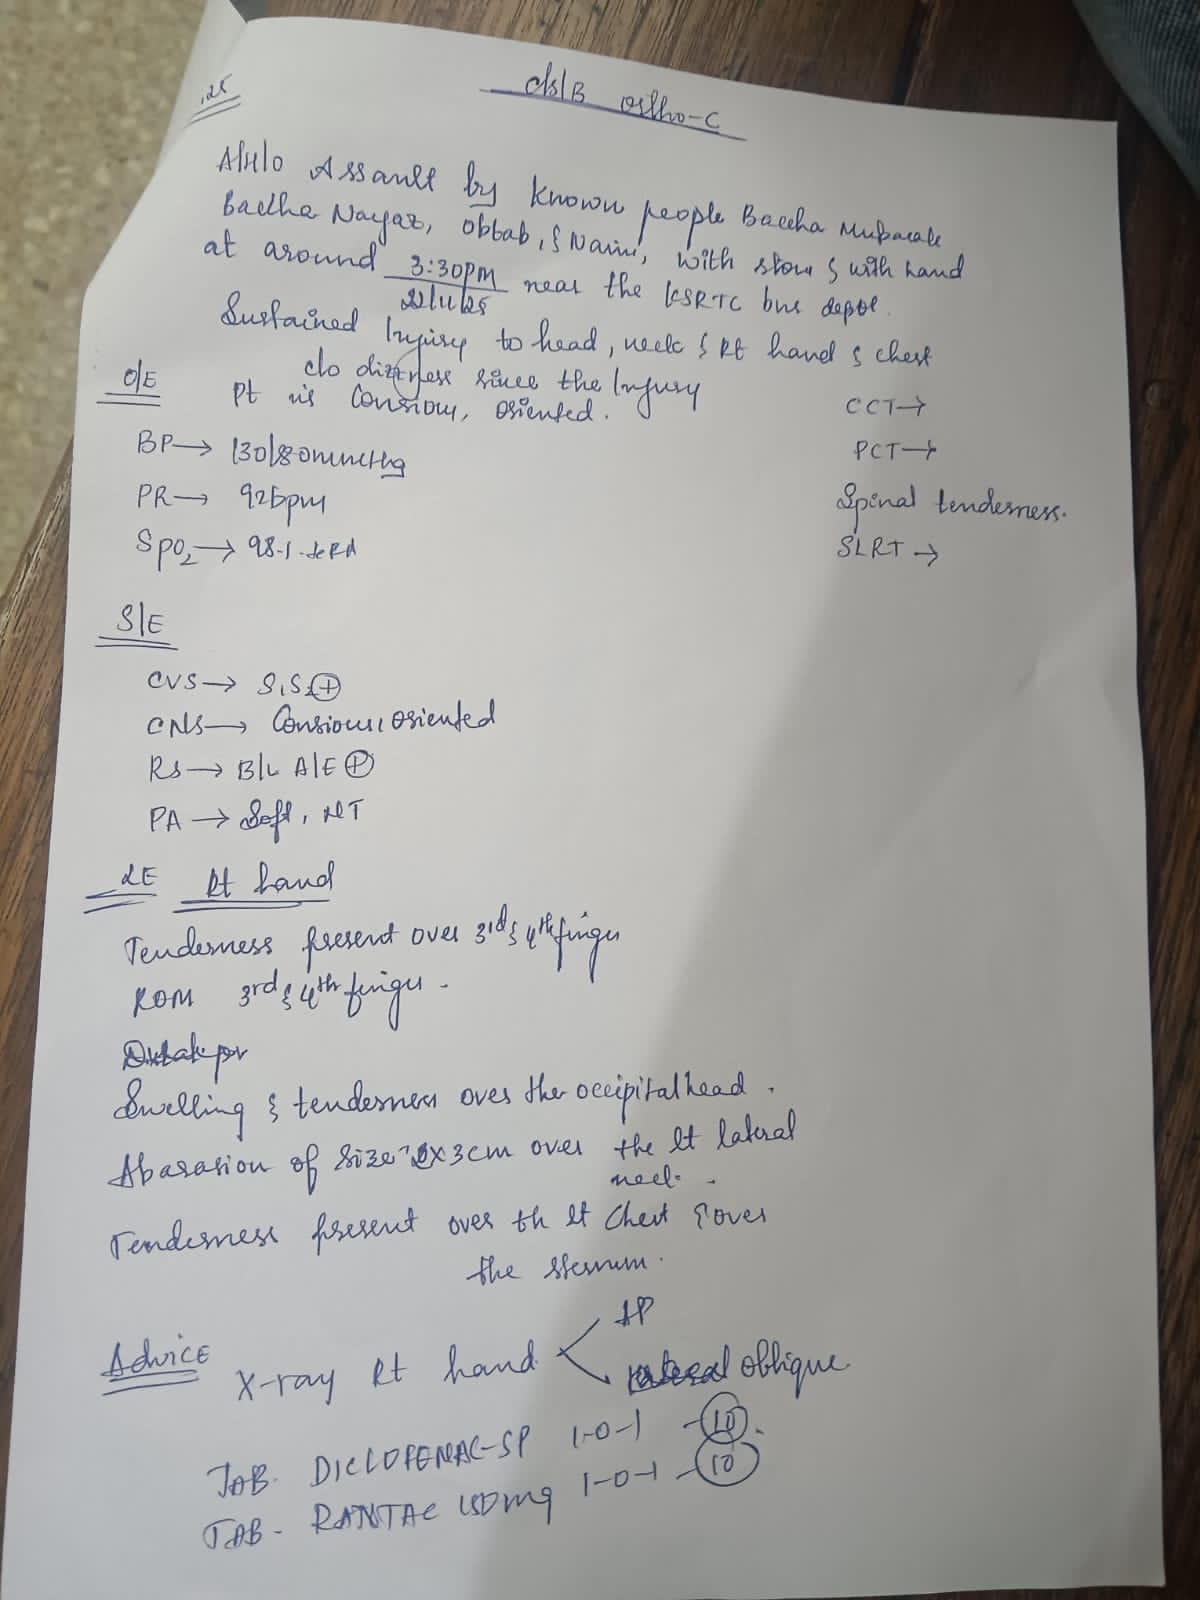 .25
c/s/B ortho-C
A/H/o Assault by known people Baccha Mubarak
Baccha Nagar, obbab, & Naim, with stone & with hand
at around 3:30pm near the KSRTC bus depot.
22/11/25
Sustained Injury to head, neck & Rt hand & chest
c/o dizziness since the Injury
O/E
Pt is Consious, oriented.
CCT→
BP→ 130/80mmHg
PCT→
PR→ 92bpm
Spinal tenderness.
SPO2→ 98% @ RA
SLRT→
S/E
CVS→ S1S2⊕
CNS→ Consious, oriented
RS→ B/L A/E⊕
PA→ Soft, NT
LE Rt hand
Tenderness present over 3rd & 4th finger
ROM 3rd & 4th finger.
Swelling & tenderness over the occipital head.
Abarasion of size 2x3cm over the lt lateral
neck.
Tenderness present over th lt Chest & over
the sternum.
Advice
X-ray Rt hand
AP
oblique
TAB. DICLOFENAC-SP 1-0-1 - 10
TAB- RANTAC 150mg 1-0-1 - 10